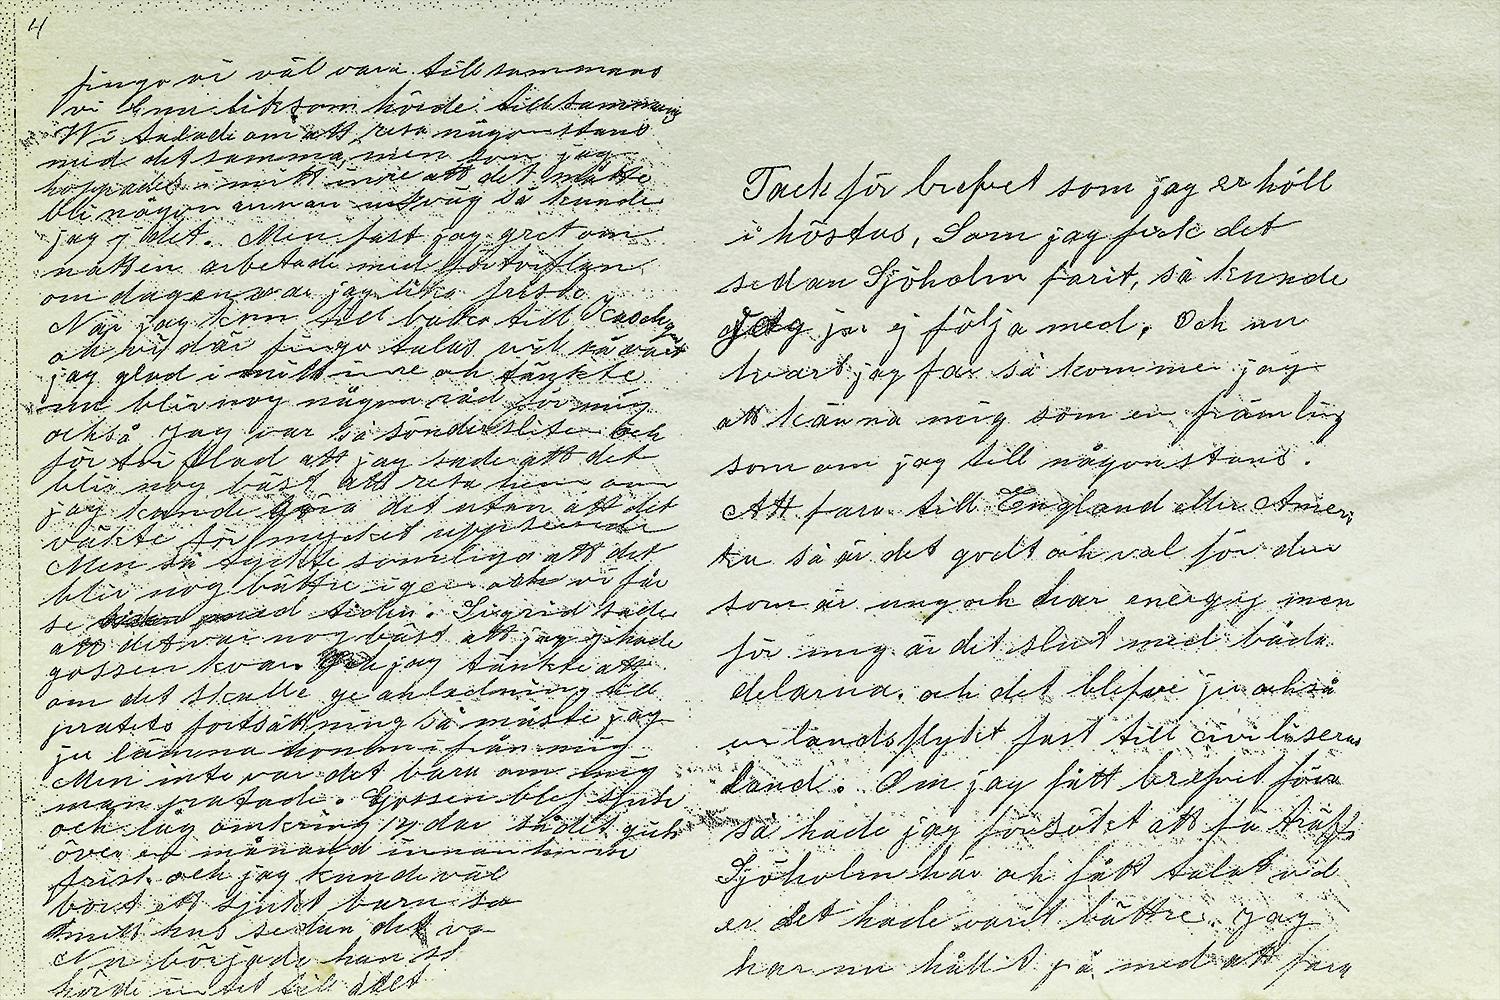 4
fingo vi väl vara tillsammans
vi ännu liksom hörde tillsammans
Wi talade om att resa någonstans
med det samma, men som jag
hoppades i mitt inre att det måtte
bli någon annan utväg så kunde
jag ej det. Men fast jag gret om
natten arbetade med förtviflan
om dagen var jag lika frisk.
När jag kom till baka till
och vi där fingo talas vid så vart
jag glad i mitt inre och tänkte
nu blir nog någon råd för mig
också jag var så söndersliten och
förtviflad att jag sade att det
blir nog bäst att resa hem om
jag kunde göra det utan att det
väkte för mycket uppseende
Men så tyckte somliga att det
blir nog bättre igen och vi får
se med tiden. Sigrid sade
att det var nog bäst att jag ej hade
gossen kvar och jag tänkte att
om det skulle ge anledning till
pratets fortsättning så måste jag
ju lämna honom ifrån mig
Men inte var det bara om mig
man pratade. Gossen blef sjuk
och låg omkring 12 dar så det gick
över en månad innan han
frisk och jag kunde väl
bort ett sjukt barn
mitt hus sedan det va
Nu började han
hörde intet till
Tack för brefvet som jag erhöll
i höstas, Som jag fick det
sedan Sjöholm farit, så kunde
jag ju ej följa med. Och nu
hvart jag far så kommer jag
att känna mig som en främling
som om jag till någonstans.
Att fara till England eller Ameri
ka så är det godt och väl för den
som är ung och har energij men
för mig är det slut med båda
delarna. och det blefve ju också
en landsflykt fast till civiliserat
land. Om jag fått brefvet förr
så hade jag försökt att få träffa
Sjöholm här och fått talat vid
er det hade varit bättre. Jag
har nu hållit på med att fara